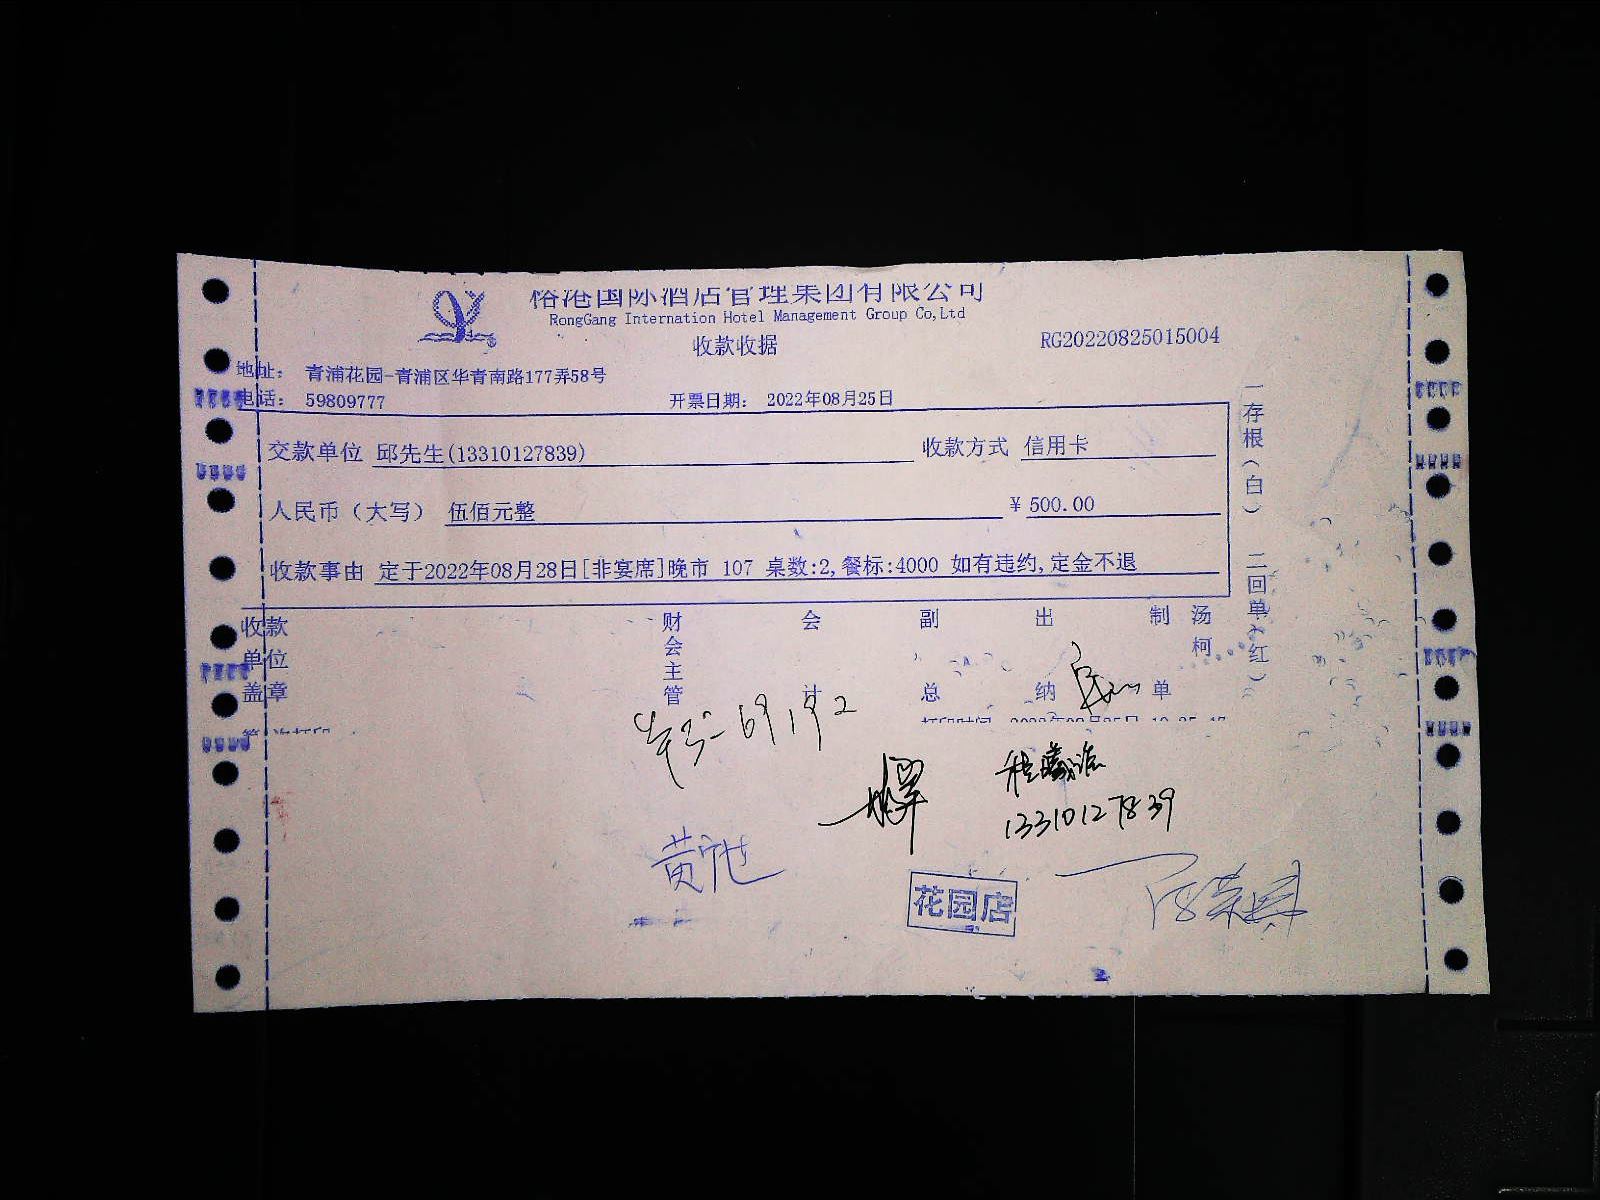 榕港国际酒店管理集团有限公司
RongGang Internation Hotel Management Group Co,Ltd
收款收据
RG20220825015004
地址： 青浦花园-青浦区华青南路177弄58号
电话： 59809777
开票日期： 2022年08月25日
交款单位 邱先生(13310127839)
收款方式 信用卡
人民币（大写） 伍佰元整
¥ 500.00
收款事由 定于2022年08月28日[非宴席]晚市 107 桌数:2,餐标:4000 如有违约,定金不退
一存根（白） 二回单（红）
收款单位盖章
财会主管
会计
副总
出纳
制单
汤柯
691912
13310127839
花园店